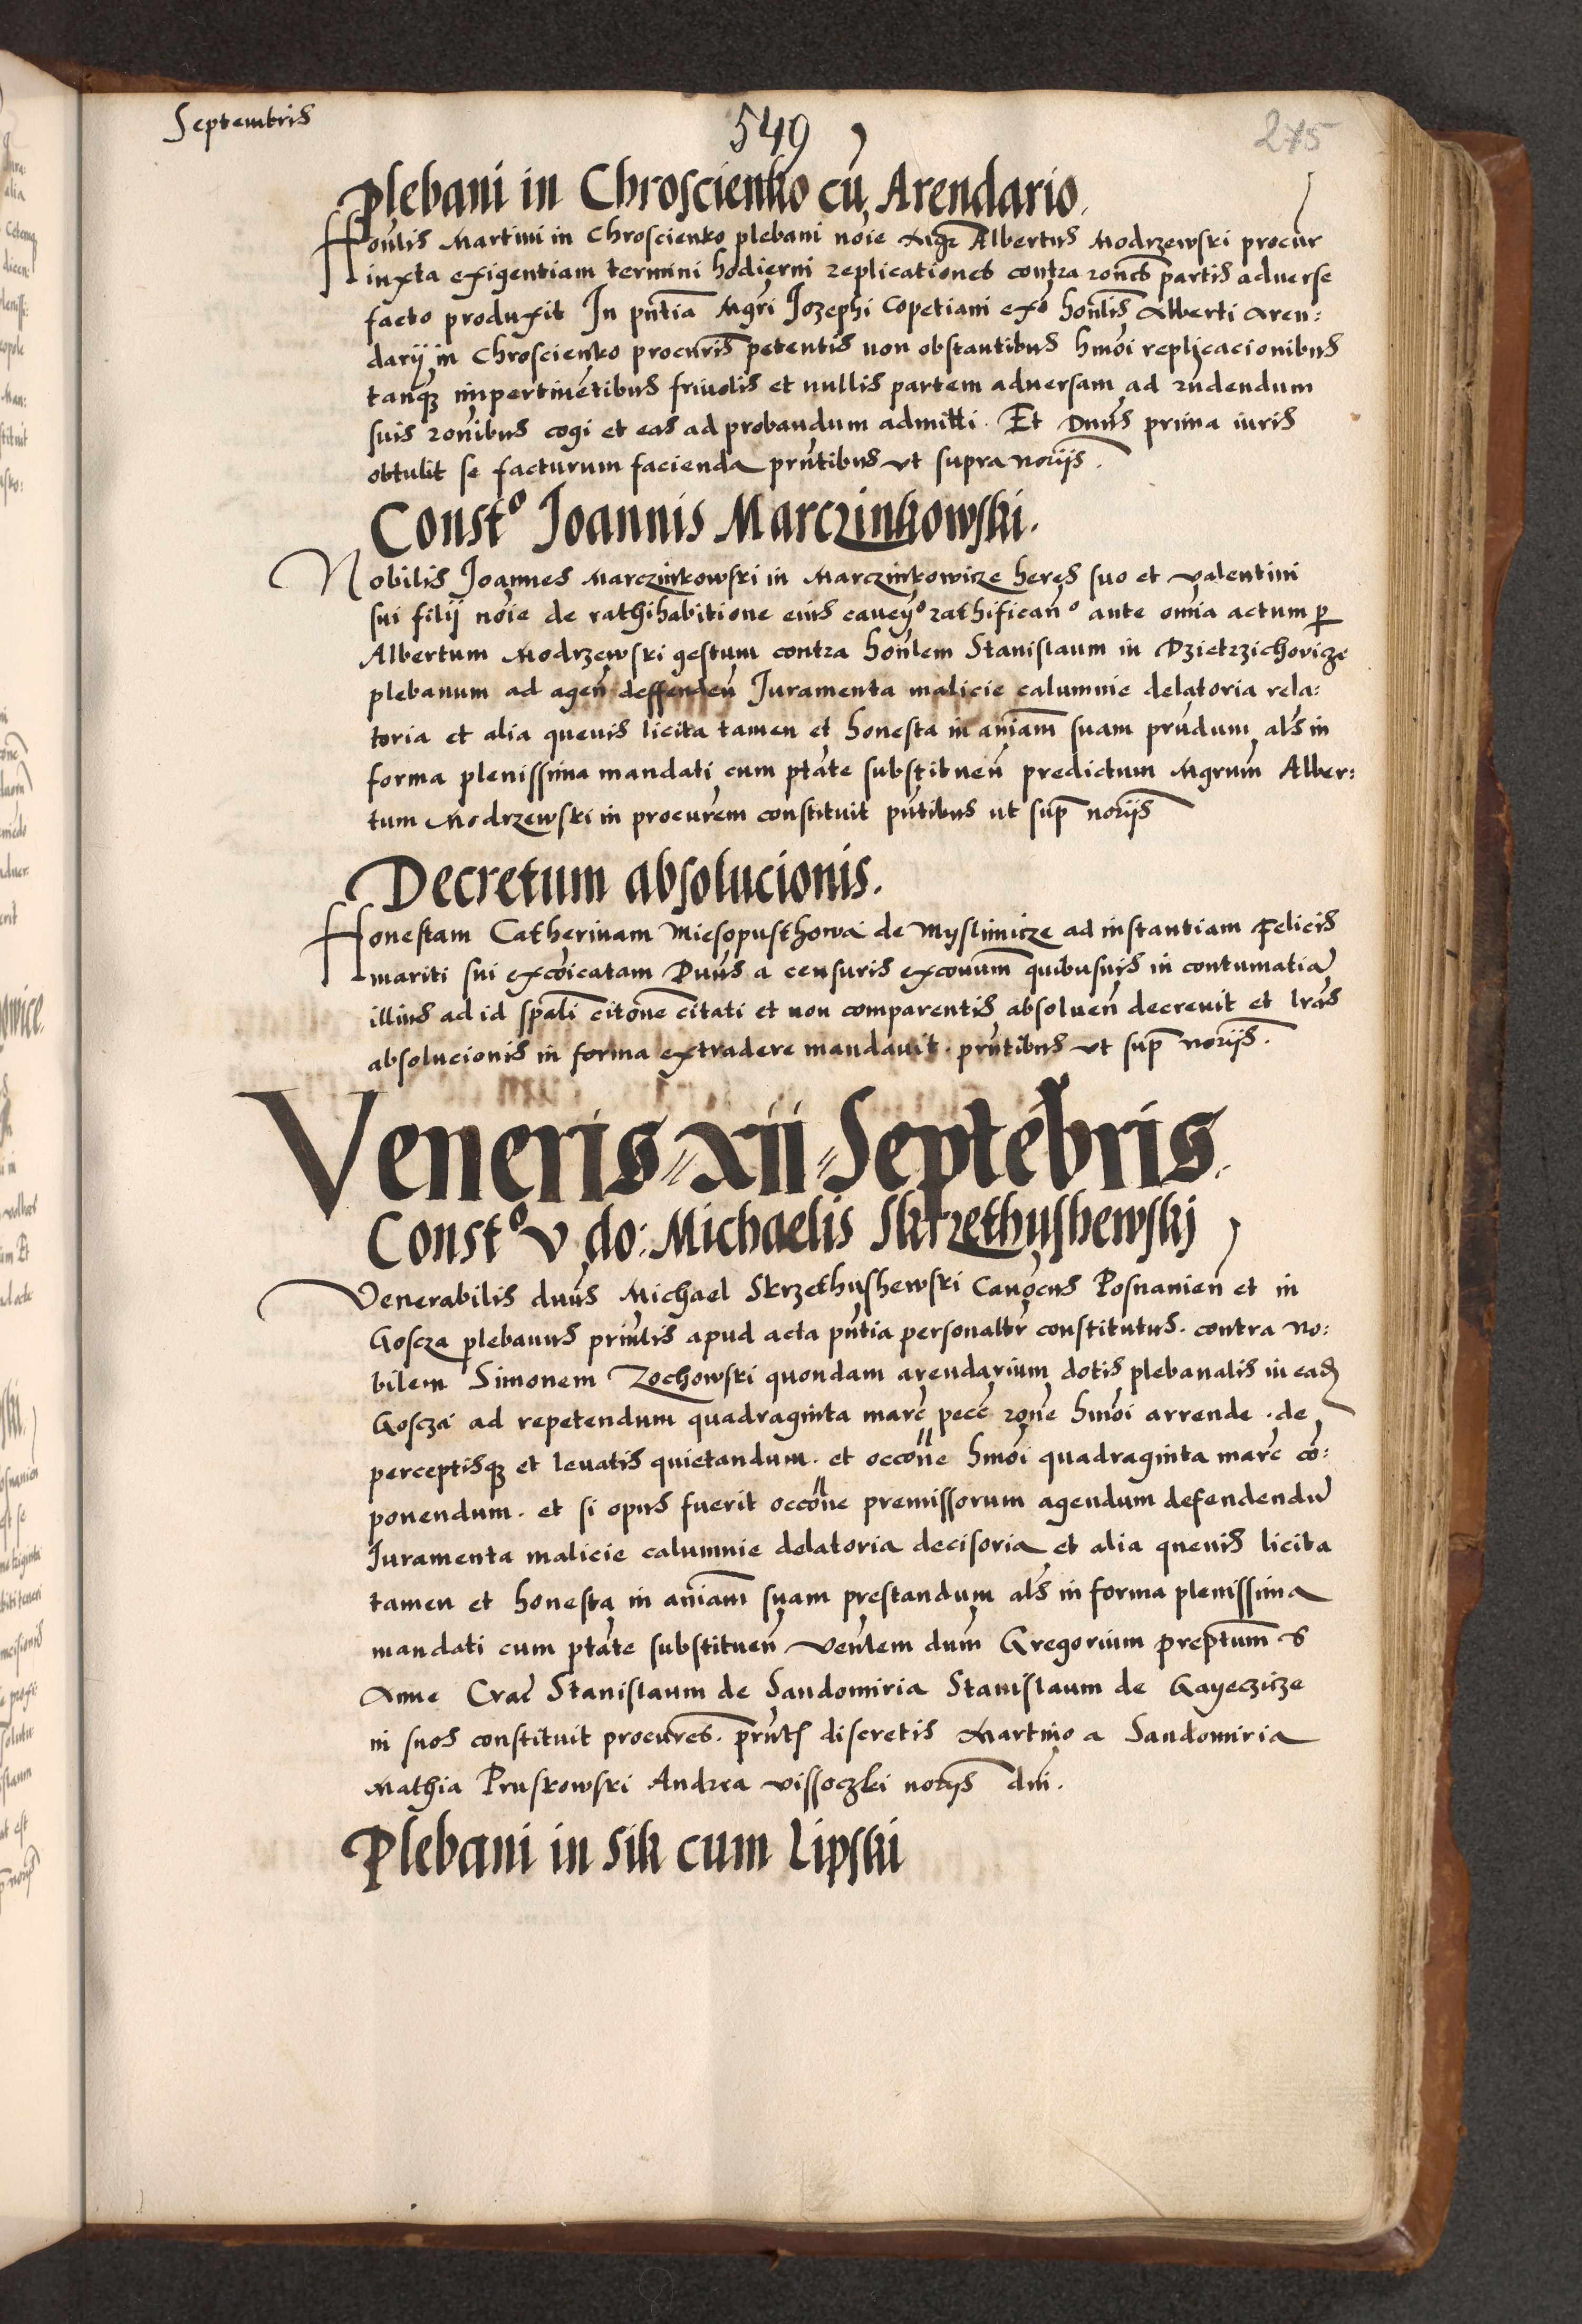 Septembris
549
275
Plebani in Chroscienko cū Arendario.
Honlis Martini in Chroscienko plebani noīe Mgr Albertus Modrzewski procur
iuxta exigentiam termini hodierni replicationes contra rones partis adverse
facto produxit In pntia Mgri Iozephi Copetiani exo honlis Alberti Aren:
darij in Chroscienko procuris petentis non obstantibus hmoi replicacionibus
tanq̨ impertinētibus frivolis et nullis partem adversam ad rndendum
suis ronibus cogi et eas ad probandum admitti. Et Dnus prima iuris
obtulit se facturum facienda prntibus ut supra norijs.
Constº Joannis Marczinkowski.
Nobilis Joannes Marczinkowski in Marczinkowicze heres suo et valentini
sui filij noīe de rathihabitione eius caueñº rathificanº ante omia actum p
Albertum Modrzewski gestum contra honlem Stanislaum in Dzietrzichovicze
plebanum ad agen deffenden Juramenta malicie calumnie delatoria rela:
toria et alia quevis licita tamen et honesta in aniam suam prndum als in
forma plenissima mandati cum ptate substituen predictum Mgrum Alber:
tum Modrzewski in procurem constituit pntibus ut sup norijs
Decretum absolucionis.
Honestam Catherinam Miesopusthowa de Myslimicze ad instantiam Felicis
mariti sui excōicatam Dnus a censuris exconum quibusuis in contumatiā
illius ad id spali citone citati et non comparentis absoluen decrevit et lras
absolucionis in forma extradere mandavit. prntibus ut sup norijs.
Veneris xii Septēbris.
Constº V do: Michaelis Skrzethushewski
Venerabilis dnus Michael Skrzethushewski Canocus Posnanien et in
Goscza plebanus prinlis apud acta pntia personaltr constitutus. contra No:
bilem Simonem Zochowski quondam arendarium dotis plebanalis in ead
Goscza ad repetendum quadraginta marc pecc rone hmoi arrende. de
perceptisq̨ et levatis quietandum. et occone hmoi quadraginta marc cō:
ponendum. et si opus fuerit occone premissorum agendum defendendū
Juramenta malicie calumnie delatoria decisoria et alia quevis licita
tamen et honesta in aniam suam prestandum als in forma plenissima
mandati cum ptate substituen venlem dnm Gregorium preptum S
Anne Crac Stanislaum de Sandomiria Stanislaum de Gayeczicze
in suos constituit procures. prnts discretis Martino a Sandomiria
Mathia Pruskowski Andrea vissoczki norijs dni.
Plebani in Sik cum Lipski